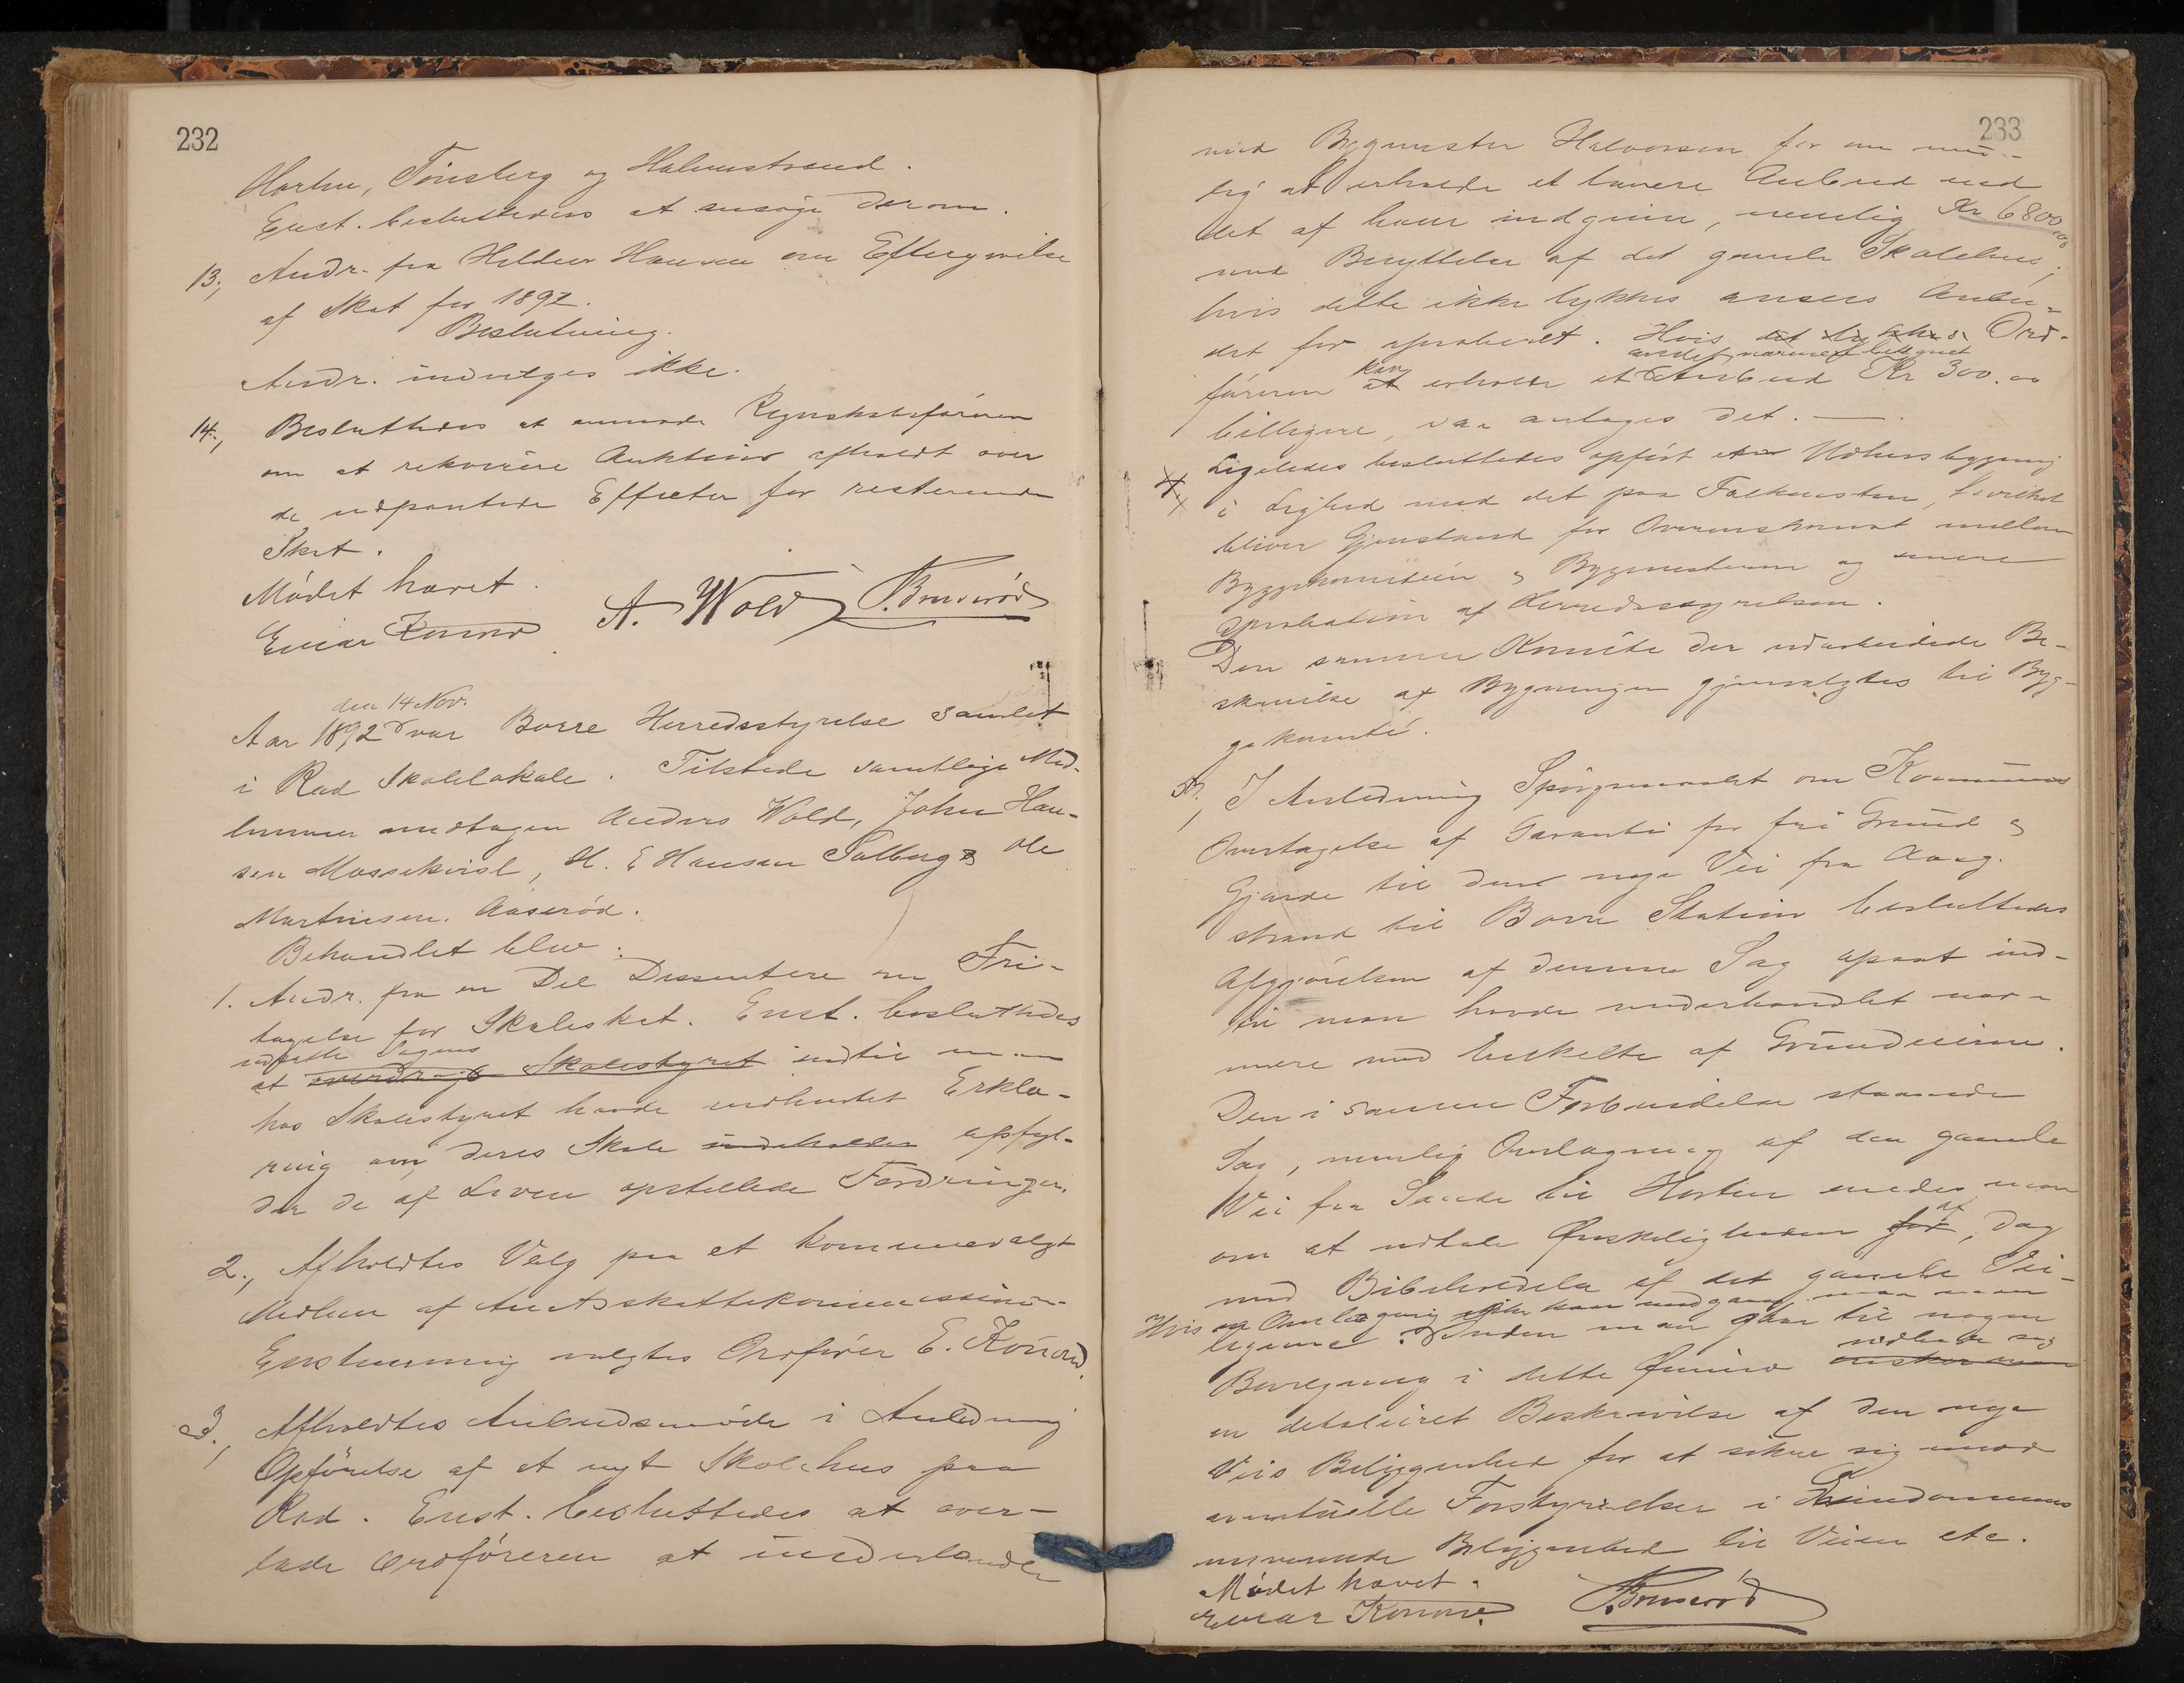 232
Horten, Tönsberg og Holmestrand.
Enst. besluttedes at ansöge derom.
13, Andr. fra Hansen om Eftergivelse
af Skat for 1892.
Beslutning.
Andr. indvilges ikke.
14, Besluttedes at anmode Regnskabsföreren
om at rekvirere Auktion afholdt over
de udpantede Effecter for resterende
Skat.
Mödet hævet.
Einar A. Wold
den 14 Nov.
Aar 1892 var Borre Herredsstyrelse samlet
i Rød Skolelokale. Tilstede samtlige Med-
lemmer undtagen Anders Wold, John Han-
sen Massekvist, H. E Hansen Solberg & Ole
Martinsen Aaseröd.
Behandlet blev:
1. Andr. fra en Del Dissentere om Fri-
tagelse for Skoleskat. Enst. besluttedes
udsætte Sagens
at overdrage Skolestyret indtil man
hos Skolestyret havde indhentet Erklæ-
ring om deres Skole indeholder opfyl-
der de af Loven opstillede Fordringer.
2., Afholdtes Valg paa et kommunevalgt
Medlem af Amtsskattekommissionen
Enstemmig valgtes Ordförer E.
3., Afholdtes Anbudsmöde i Anledning
Opförelse af et nyt Skolehus paa
Rød. Enst. besluttedes at over-
lade Ordföreren at underhandle
233
med Bygmester Halvorsen for om mu-
lig at erholde et lavere Anbud end
det af ham indgivne, nemlig Kr 6800,00
med Benyttelse af det gamle Skolehus;
hvis dette ikke lykkes ansees Anbu-
det for aproberet. Hvis det lykkes Ord-
andet nærmest betegnet
kan
föreren at erholde et Anbud Kr 300.00
billigere, saa antages det. —
Ligeledes besluttedes opfört en Udhusbygning
i Lighed med det paa Falkensten, hvilket
bliver Gjenstand for Overenskomst mellem
Byggekomiteen & Bygmesteren og senere
aprobation af Herredsstyrelsen.
Den samme Komite der udarbeidede Be-
skrivelse af Bygningen gjenvalgtes til Byg-
gekomité.
I Anledning Spörgsmaalet om Kommunens
Overtagelse af Garanti for fri Grund &
Gjærde til den nye Vei fra Aasg.
strand til Borre Station besluttedes
Afgjörelsen af denne Sag udsat ind-
til man havde underhandlet nær-
mere med Enkelte af Grundeierne.
Den i samme Forbindelse staaende
Sag, nemlig Omlægning af den gamle
Vei fra Sande til Horten enedes man
af
om at udtale Önskeligheden for, dog
med Bibeholdelse af det gamle Vei-
Hvis en Omlægning ikke kan undgaaes maa man
legeme. Inden man gaar til nogen
udbede sig
Bevægning i dette Öiemed önsker man
en detaljeret Beskrivelse af den nye
Veis Beliggenhed for at sikre sig imod
eventuelle Forstyrrelser i Eiendommens
nuværende Beliggenhed til Veien etc.
Mödet hævet.
Einar